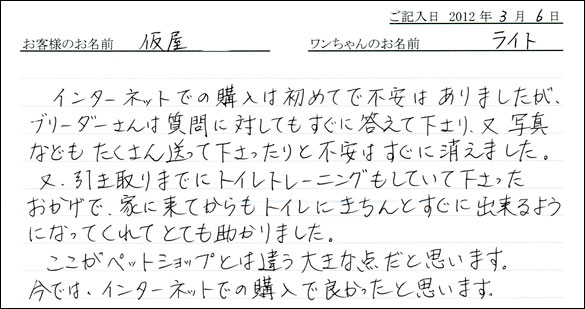 ご記入日 2012年3月6日
お客様のお名前 仮屋 ワンちゃんのお名前 ライト
インターネットでの購入は初めてで不安はありましたが、
ブリーダーさんは質問に対してもすぐに答えて下さり、又写真
などもたくさん送って下さったりと不安はすぐに消えました。
又、引き取りまでにトイレトレーニングもしていて下さった
おかげで、家に来てからもトイレにきちんとすぐに出来るよう
になってくれてとても助かりました。
ここがペットショップとは違う大きな点だと思います。
今では、インターネットでの購入で良かったと思います。